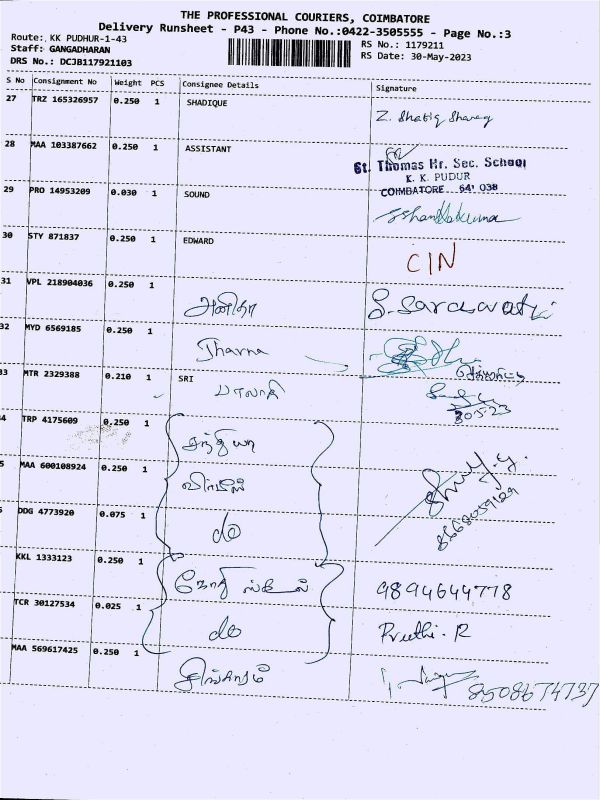 THE PROFESSIONAL COURIERS, COIMBATORE
Delivery Runsheet - P43 - Phone No.:0422-3505555 - Page No.:3
Route: KK PUDHUR-1-43
RS No.: 1179211
Staff: GANGADHARAN
RS Date: 30-May-2023
DRS No.: DCJB117921103
S No Consignment No Weight PCS Consignee Details Signature
27 TRZ 165326957 0.250 1 SHADIQUE
Z. Shatiq Shareq
28 MAA 103387662 0.250 1 ASSISTANT
St. Thomas Hr. Sec. School
K. K. PUDUR
COIMBATORE 641 038
29 PRO 14953209 0.030 1 SOUND
30 STY 871837 0.250 1 EDWARD
CIN
31 VPL 218904036 0.250 1
அனிதா S. Saraswathi
32 MYD 6569185 0.250 1
Tharna
33 MTR 2329388 0.210 1 SRI
பாலாதி
30523
4 TRP 4175609 0.250 1
சந்தியா
5 MAA 600108924 0.250 1
8668059169
DDG 4773920 0.075 1
do
KKL 1333123 0.250 1
9894644778
TCR 30127534 0.025 1
do Preethi. R
MAA 569617425 0.250 1
சிங்காரம் 8508674737